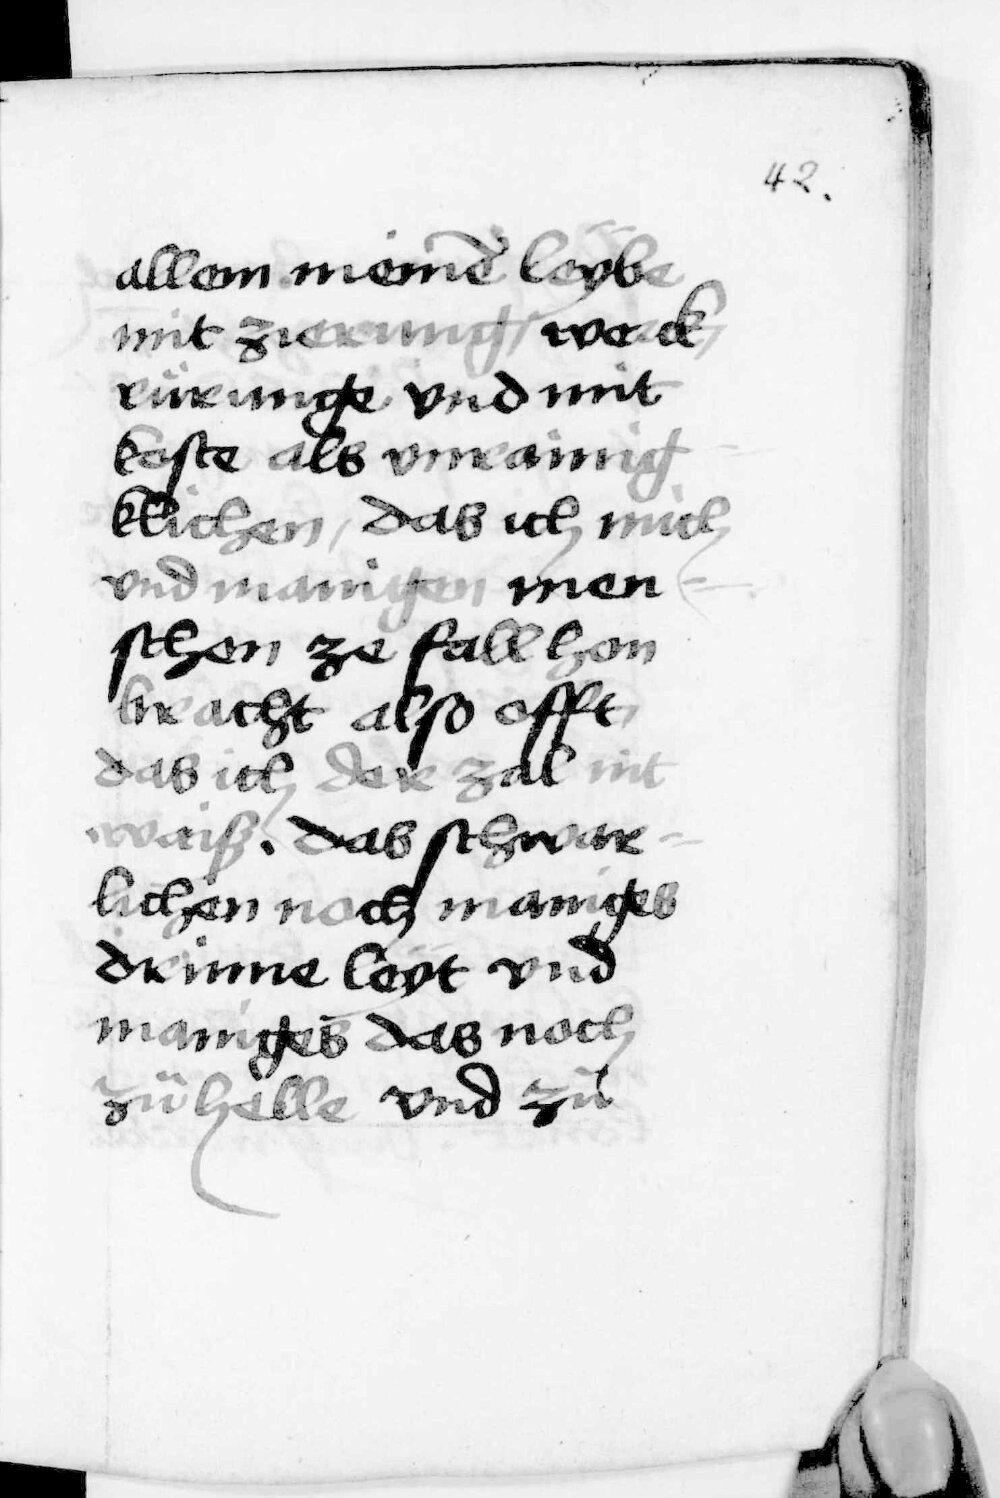 42.
allem meinē leybe
mit zierung, werck,
rürunge vnd mit
koste als vnrainig
klichen, das ich mich
vnd manigen men =
schen ze fall hon
bracht also offt
das ich der zal nit
waiß. das schwar =
lichen noch maniges
drinne leyt vnd
maniges das noch
zü helle vnd zü